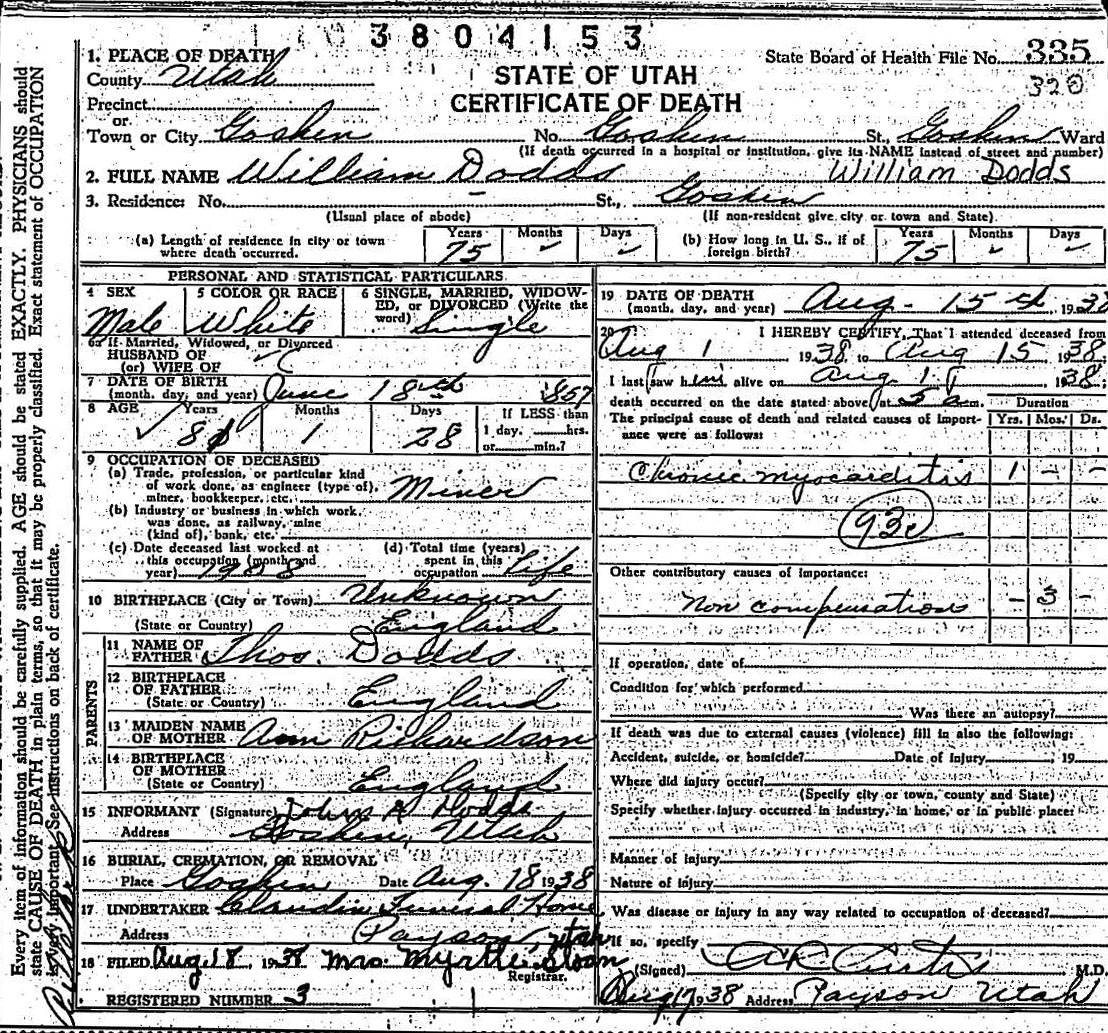 3804153
1. PLACE OF DEATH
State Board of Health File No. 335
County Utah
STATE OF UTAH
320
Precinct
CERTIFICATE OF DEATH
or
Town or City Goshen No. Goshen St., Goshen Ward
(If death occurred in a hospital or institution, give its NAME instead of street and number)
2. FULL NAME William Dodds William Dodds
3. Residence: No. – St., Goshen
(Usual place of abode) (If non-resident give city or town and State)
(a) Length of residence in city or town where death occurred. Years 75 Months ✓ Days ✓
(b) How long in U. S., if of foreign birth? Years 75 Months ✓ Days ✓
PERSONAL AND STATISTICAL PARTICULARS
4 SEX Male
5 COLOR OR RACE White
6 SINGLE, MARRIED, WIDOWED, or DIVORCED (Write the word) Single
6a If Married, Widowed, or Divorced
HUSBAND OF
(or) WIFE OF
7 DATE OF BIRTH
(month, day, and year) June 18th 1857
8 AGE Years 81 Months 1 Days 28 If LESS than
1 day, hrs.
or min.?
9 OCCUPATION OF DECEASED
(a) Trade, profession, or particular kind
of work done, as engineer (type of),
miner, bookkeeper, etc. Miner
(b) Industry or business in which work
was done, as railway, mine
(kind of), bank, etc.
(c) Date deceased last worked at
this occupation (month and
year)
(d) Total time (years)
spent in this
occupation Life
10 BIRTHPLACE (City or Town) Unknown
(State or Country) England
PARENTS
11 NAME OF
FATHER Thos. Dodds
12 BIRTHPLACE
OF FATHER
(State or Country) England
13 MAIDEN NAME
OF MOTHER Ann Richardson
14 BIRTHPLACE
OF MOTHER
(State or Country) England
15 INFORMANT (Signature) John A Dodds
Address Goshen, Utah
16 BURIAL, CREMATION, OR REMOVAL
Place Goshen Date Aug. 18 1938
17 UNDERTAKER Claudin Funeral Home
Address Payson, Utah
18 FILED Aug 18, 1938 Mrs. Myrtle Sloan
Registrar.
REGISTERED NUMBER 3
19 DATE OF DEATH
(month, day, and year) Aug. 15th 1938
20 I HEREBY CERTIFY, That I attended deceased from
Aug 1 1938 to Aug 15 1938
I last saw him alive on Aug 1938;
death occurred on the date stated above at 5 a m. Duration
The principal cause of death and related causes of importance were as follows: Yrs. Mos. Ds.
Chronic myocarditis 1 – –
Other contributory causes of importance:
Non compensation – 3 –
If operation, date of
Condition for which performed
Was there an autopsy?
If death was due to external causes (violence) fill in also the following:
Accident, suicide, or homicide? Date of injury , 19
Where did injury occur?
(Specify city or town, county and State)
Specify whether injury occurred in industry, in home, or in public place:
Manner of injury
Nature of injury
Was disease or injury in any way related to occupation of deceased?
If so, specify
(Signed) A R Curtis M.D.
Aug 17 1938 Address Payson Utah
Every item of information should be carefully supplied. AGE should be stated EXACTLY. PHYSICIANS should
state CAUSE OF DEATH in plain terms, so that it may be properly classified. Exact statement of OCCUPATION
is very important. See instructions on back of certificate.